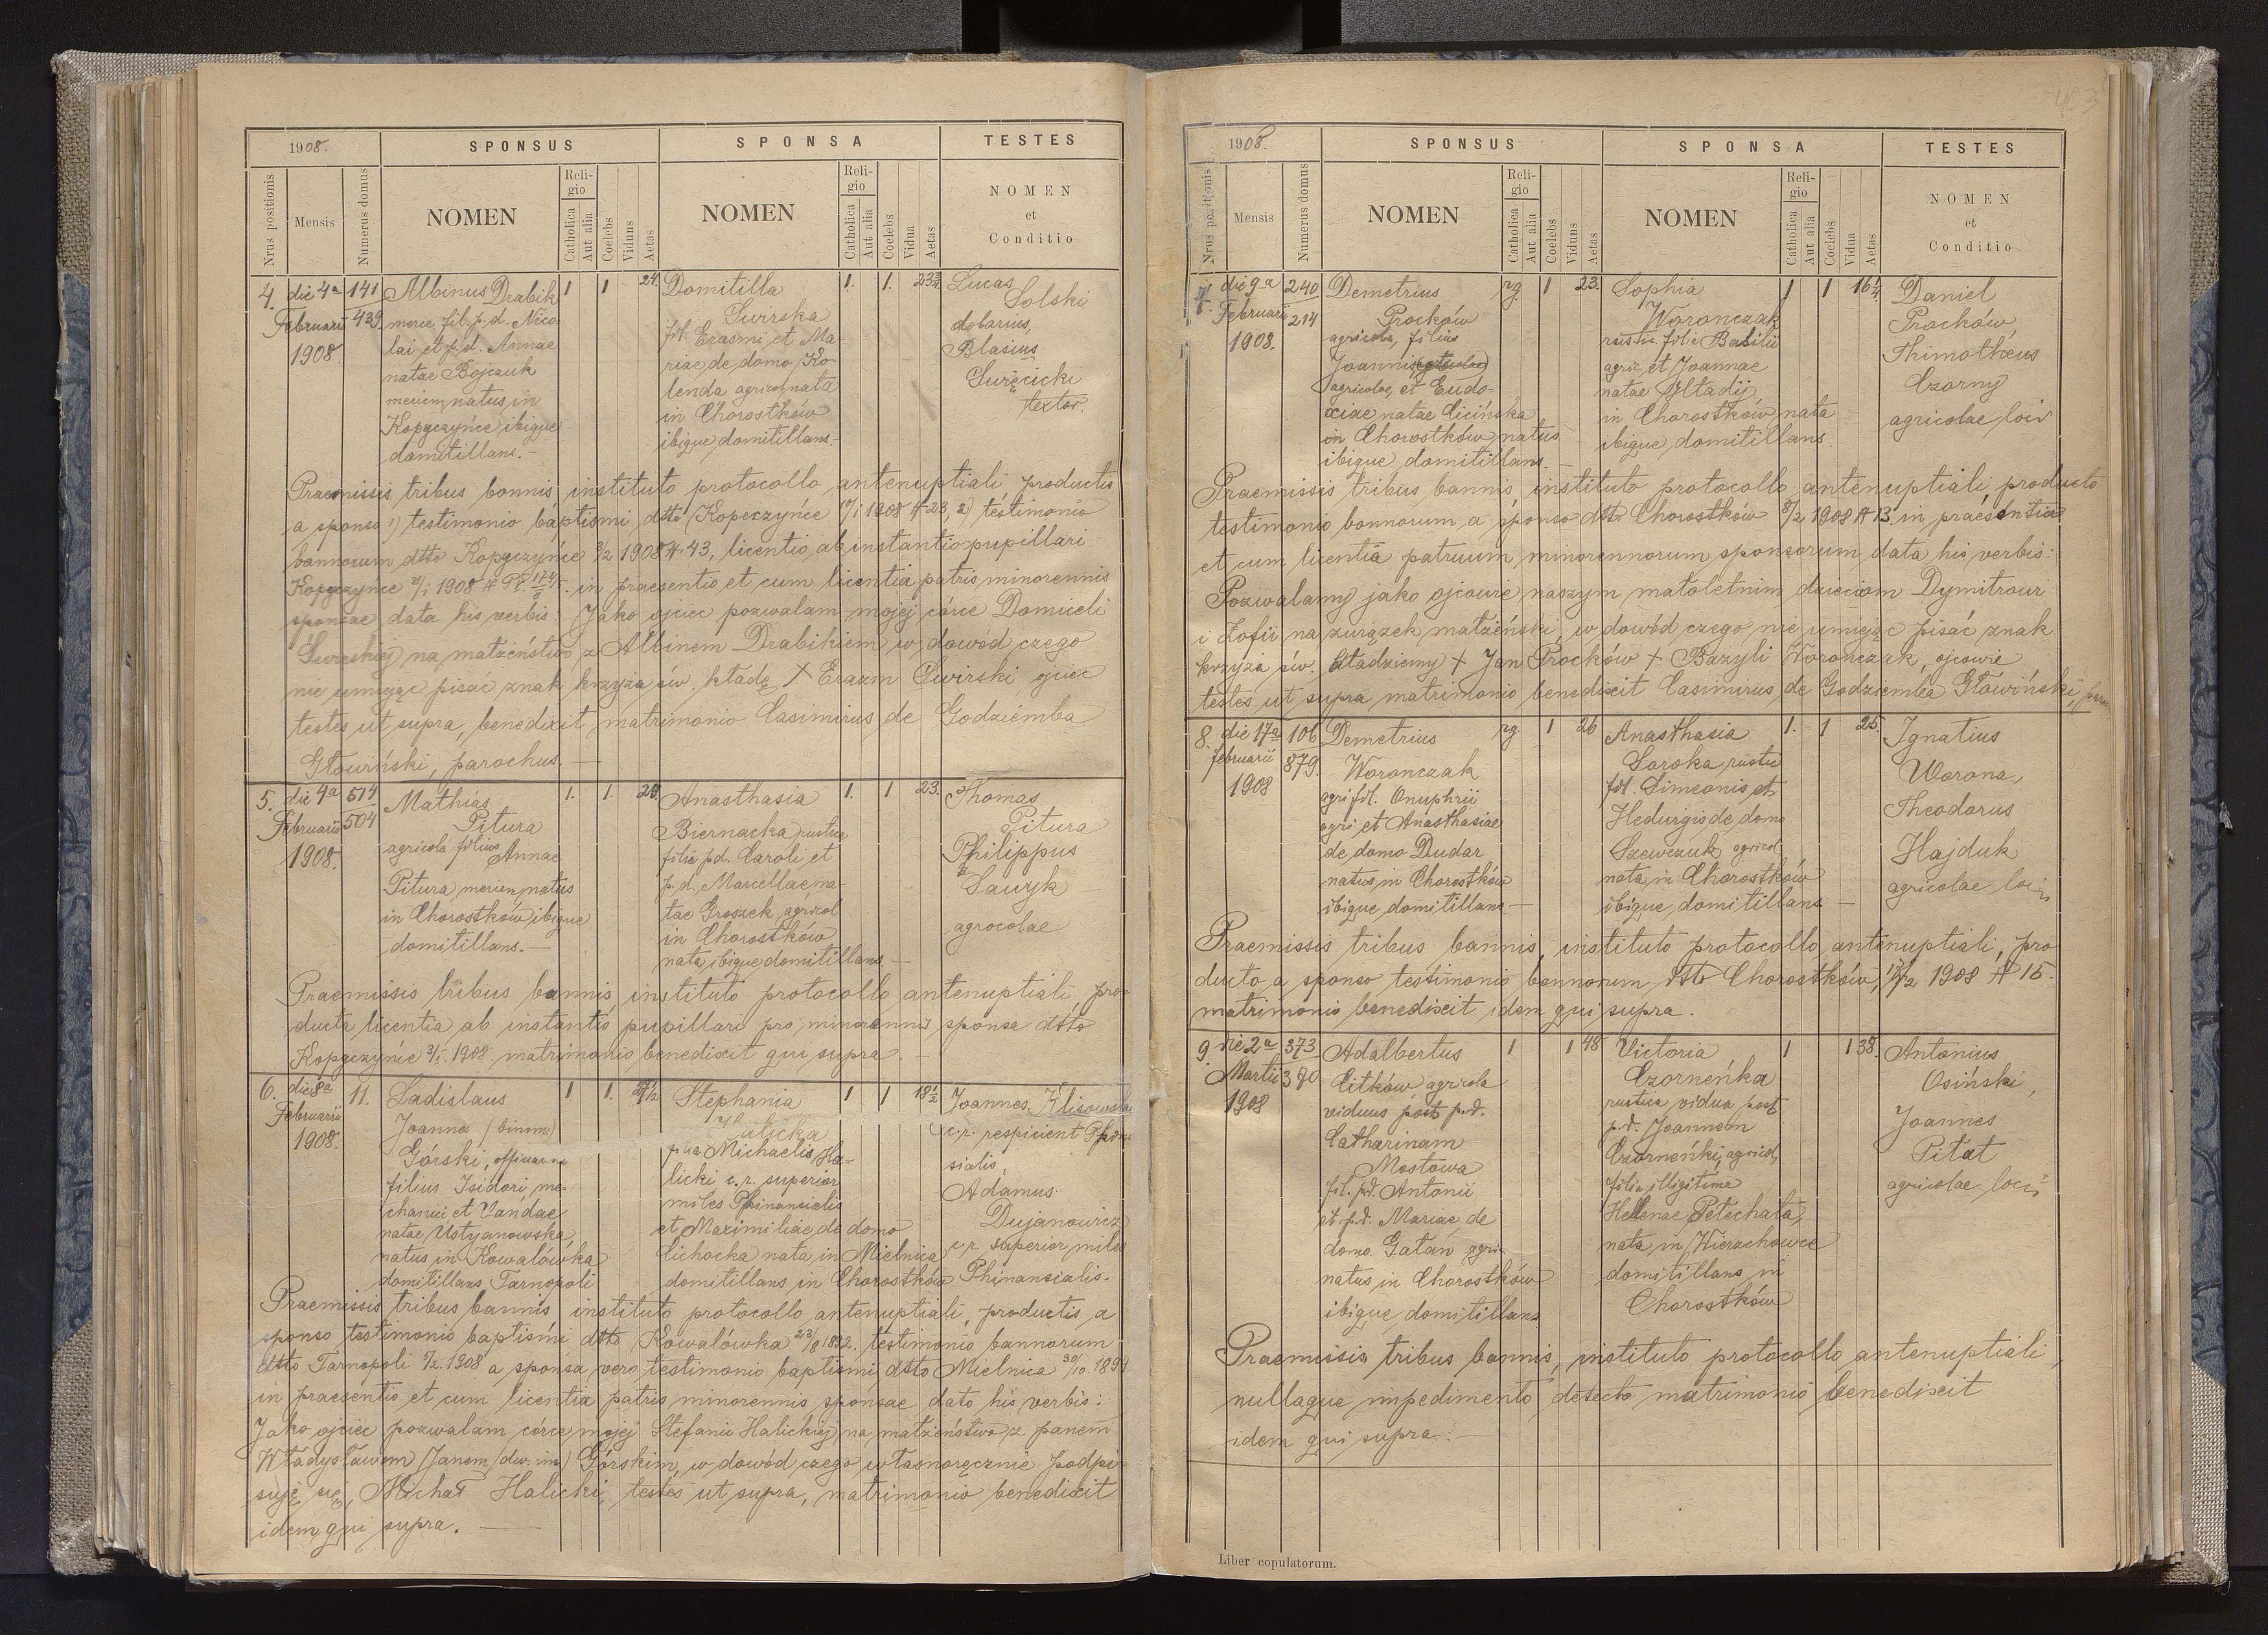 1908.
SPONSUS
SPONSA
TESTES
Nrus positionis
Mensis
Numerus domus
NOMEN
Religio
Catholica
Aut alia
Coelebs
Viduus
Aetas
NOMEN
Religio
Catholica
Aut alia
Coelebs
Vidua
Aetas
NOMEN
et
Conditio
4.
die 4a
Februarii
1908.
141
439
Albinus Drabik
merc. fil. p.d. Nico
lai et p.d. Annae
natae Bojczuk
natus in
Kopyczyńce ibique
domitillans.-
1
1
24.
Domitilla
fil. Erasmi et Ma-
riae de domo Ko-
lenda agricol. nata
in Chorostków
ibique domitillans.-
1.
1.
Lucas
Solski
dolarius,
Blasius
Święcicki
textor.
Praemissis tribus bannis, instituto protocollo antenuptiali productis
a sponso 1) testimonio baptismi dtto Kopeczyńce 17/I 1908 # 23, 2) testimonio
bannorum dtto Kopyczyńce 3/2 1908 # 43, licentio ab instantio pupillari
Kopyczyńce 1908 in praesentio et cum licentia patris minorennis
sponsae data his verbis: Jako ojciec pozwalam mojej córce Domiceli
na małżeństwo z Albinem Drabikiem w dowód czego
nie umiejąc pisać znak krzyża św. kładę + Erazm Świrski ojciec
testes ut supra, benedixit matrimonio Casimirus de Godziemba
Głowiński, parochus.—
5.
die 4a
Februarii
1908.
514
504
Mathias
Pitura
agricola filius
Annae
Pitura, natus
in Chorostków ibique
domitillans.—
1.
1.
Anasthasia
Biernacka rustica
filia p.d. Caroli et
p.d. Marcellae na-
tae Groszek, agricol
in Chorostków
nata, ibique domitillans.—
1.
1
23.
Thomas
Pitura
Philippus
Sawyk
agrocolae
Praemissis tribus bannis, instituto protocollo antenuptiali, pro-
ducta licentia ab instantio pupillari pro minorennis sponsa dtto
Kopyczyńce 1908 matrimonio benedixit qui supra.—
6.
die 8a
Februarii
1908.
11.
Ladislaus
Joannes (binom)
Górski,
filius Isidori, me-
chanici et Vandae
natae Ustyanowska,
natus in Kowalówka
domitillans Tarnopoli
1
1.
Stephania
Halicka
Michaelis Ha-
licki c.r. superior
miles Phinansialis
et Maximiliae de domo
Cichocka nata in Mielnica
domitillans in Chorostków
1
1
18 1/2
Joannes Klisowski
c.r. respicient Phinan
sialis,
Adamus
Dujanowicz
c.r. superior miles
Phinansialis.
Praemissis tribus bannis, instituto protocollo antenuptiali, productis a
sponso testimonio baptismi dtto Kowalówka testimonio bannorum
dtto Tarnopoli 1908 a sponsa vero testimonio baptismi dtto Mielnica
in praesentio et cum licentia patris minorennis sponsae dato his verbis:
Jako ojciec pozwalam córce mojej Stefanii Halickiej na małżeństwo z panem
Władysławem Janem (dw. im) Górskim, w dowód czego własnoręcznie podpi-
suję się, Michał Halicki, testes ut supra, matrimonio benedixit
idem qui supra.—
1908.
SPONSUS
SPONSA
TESTES
Nrus positionis
Mensis
Numerus domus
NOMEN
Religio
Catholica
Aut alia
Coelebs
Viduus
Aetas
NOMEN
Religio
Catholica
Aut alia
Coelebs
Vidua
Aetas
NOMEN
et
Conditio
7.
die 9a
Februarii
1908.
240
214
Demetrius
Proćków
agricola, filius
Joannis
agricolae, et Eudo-
xiae natae Cicińska
in Chorostków natus
ibique domitillans.—
rg.
1
23.
Sophia
Worończak
rustic. filia Basilii
agric. et Joannae
natae
in Chorostków nata
ibique domitillans.
1
1
Daniel
Proćków,
Thimotheus
Czorny
agricolae loci
Praemissis tribus bannis, instituto protocollo antenuptiali, producto
testimonio bannorum a sponso dtto Chorostków 8/2 1908 # 13. in praesentia
et cum licentia patruum minorennorum sponsorum data his verbis:
Pozwalamy jako ojcowie naszym małoletnim dzieciom Dymitrowi
i Zofii na związek małżeński, w dowód czego nie umiejąc pisać znak
krzyża św. kładziemy + Jan Proćków + Bazyli Worończak, ojcowie
testes ut supra matrimonio benedixit Casimirus de Godziemba Głowiński,
8.
die 17a
februarii
1908
106
879.
Demetrius
Woronczak
agri fil. Onuphrii
agri et Anasthasiae
de domo Dudar
natus in Chorostków
ibique domitillans—
rg.
1
26
Anasthasia
Soroka rustic
fil. Simeonis et
Hedvigis de domo
Szewczuk agricol
nata in Chorostków
ibique domitillans—
1.
1
25.
Ignatius
Worona,
Theodorus
Hajduk
agricolae loci
Praemissis tribus bannis, instituto protocollo antenuptiali, pro
ducto a sponso testimonio bannorum dtto Chorostków, 1908 # 15.
matrimonio benedixit idem qui supra.
9.
die 2a
Martii
1908
373
Adalbertus
Citków agricola
viduus post p.d.
Catharinam
Mostowa
fil. p.d. Antonii
et p.d. Mariae de
domo Gatań agric
natus in Chorostków
ibique domitillans
1
1
48
Victoria
Czorneńka
rustica vidua post
p.d. Joannem
Czorneńki, agricol,
filia illigitima
Hellenae Petechata,
nata in Wierzchowce
domitillans in
Chorostków
1
1
38.
Antonius
Osiński,
Joannes
Pitat
agricolae loci
Praemissis tribus bannis, instituto protocollo antenuptiali,
nullaque impedimento detecto matrimonio benedixit
idem qui supra.—
Liber copulatorum.